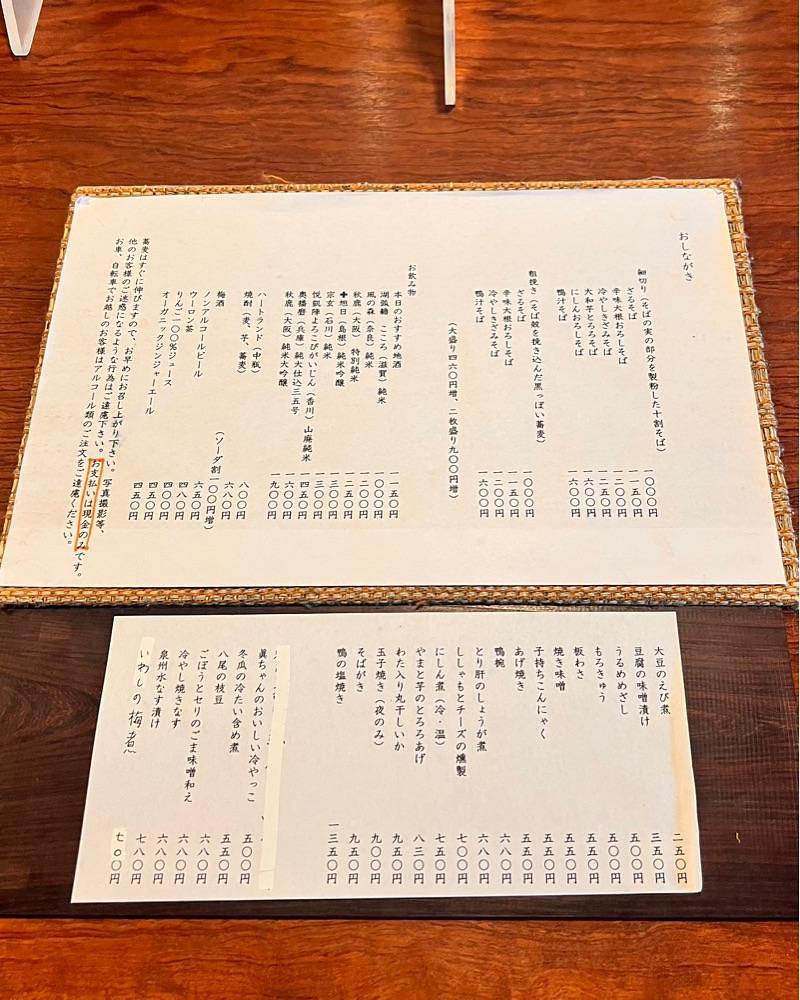 おしながき
細切り(そばの実の部分を製粉した十割そば)
ざるそば 一〇〇〇円
辛味大根おろしそば 一一五〇円
冷やしきざみそば 一二〇〇円
大和芋とろろそば 一二五〇円
にしんおろしそば 一六〇〇円
鴨汁そば 一六〇〇円
粗挽き(そば殻を挽き込んだ黒っぽい蕎麦)
ざるそば 一〇〇〇円
辛味大根おろしそば 一一五〇円
冷やしきざみそば 一二〇〇円
鴨汁そば 一六〇〇円
(大盛り四六〇円増、二枚盛り九〇〇円増)
お飲み物
本日のおすすめ地酒 一一五〇円
湖弧艪 こころ(滋賀)純米 一〇〇〇円
風の森(奈良)純米 一二〇〇円
秋鹿(大阪)特別純米 一二五〇円
十旭日(島根)純米吟醸 一三〇〇円
宗玄(石川)純米 一三〇〇円
悦凱陣よろこびがいじん(香川)山廃純米 一四五〇円
奥播磨(兵庫)純大仕込三五号 一六〇〇円
秋鹿(大阪)純米大吟醸 一九〇〇円
ハートランド(中瓶) 八〇〇円
焼酎(麦、芋、蕎麦) 六八〇円
(ソーダ割一〇〇円増)
梅酒 六五〇円
ノンアルコールビール 四八〇円
ウーロン茶 四〇〇円
りんご一〇〇%ジュース 四五〇円
オーガニックジンジャーエール 四五〇円
蕎麦はすぐに伸びますので、お早めにお召し上がり下さい。写真撮影等、
他のお客様のご迷惑になるような行為はご遠慮下さい。お支払いは現金のみです。
お車、自転車でお越しのお客様はアルコール類のご注文をご遠慮ください。
大豆のえび煮 二五〇円
豆腐の味噌漬け 三五〇円
うるめめざし 五〇〇円
もろきゅう 五五〇円
板わさ 五〇〇円
焼き味噌 五五〇円
子持ちこんにゃく 五五〇円
あげ焼き 五五〇円
鴨椀 六八〇円
とり肝のしょうが煮 六八〇円
ししゃもとチーズの燻製 七〇〇円
にしん煮(冷・温) 七五〇円
やまと芋のとろろあげ 八三〇円
わた入り丸干しいか 九五〇円
玉子焼き(夜のみ) 九〇〇円
そばがき 九五〇円
鴨の塩焼き 一三五〇円
眞ちゃんのおいしい冷やっこ 五〇〇円
冬瓜の冷たい含め煮 五五〇円
八尾の枝豆 六八〇円
ごぼうとセリのごま味噌和え 六八〇円
冷やし焼きなす 六八〇円
泉州水なす漬け 七八〇円
いわしの梅煮 七〇〇円